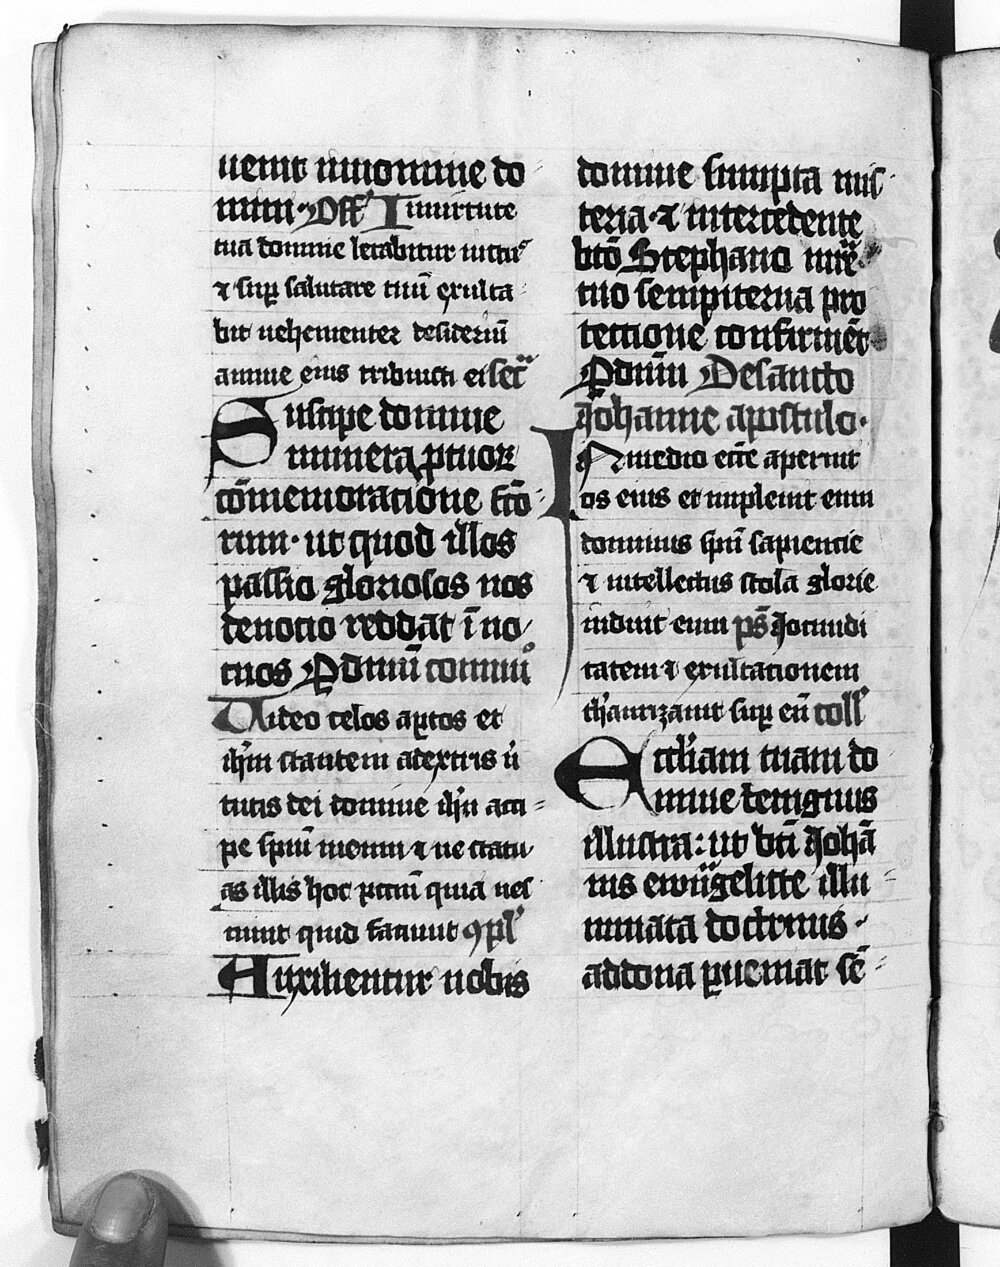 uenit innomine do
mini. Off' Inuirtute
tua domine letabitur iustus
⁊ sup̱ salutare tuū exulta
bit uehementer desideriū
anime eius tribuisti ei secͬ
Suscipe domine
munera ꝓ tuoꝝ
cōmemoratione scō
rum· ut quod illos
passio gloriosos nos
deuotio reddat īno
cuos P dnīm com̄uū
Uideo celos aptos et
ih̄m stantem adextris ui
tutis dei domine ih̄u acci
pe spm̄ meum ⁊ ne statu
as illis hoc pctm̄ quia nes
ciunt quid faciunt ꝯpl'
Auxilientur nobis
domine sumpta mis
teria· ⁊ intercedente
bt̄o Stephano mr̄e
tuo sempiterna pro
tectione confirmēt
P dnm̄ De sancto
Johanne apostolo·
In medio ecc̄e aperuit
os eius et impleuit eum
dominus spū sapientie
⁊ intellectus stola glorie
induit eum ps̄ Jocundi
tatem ⁊ exultationem
th'aurizauit sup̱ eū coll'
Eccl'iam tuam do
mine benignus
illustra: ut bt̄i Johā
nis ewāgeliste illu
minata doctrinis·
addona ꝑueniat sē